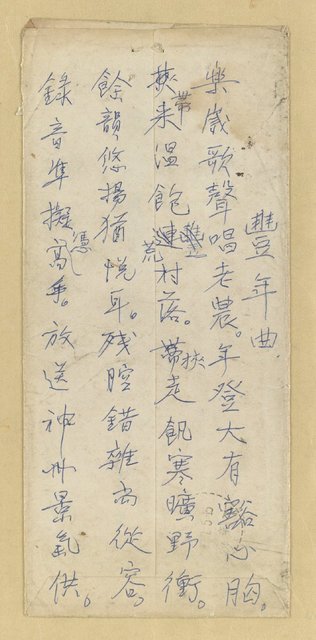 豐年曲
樂歲歌聲唱老農。年登大有豁心胸。
挾帶來溫飽連豐荒村落。帶挾走飢寒曠野衝。
餘韻悠揚猶悅耳。殘腔錯雜尚從容。
錄音準擬憑高手。放送神州景氣供。